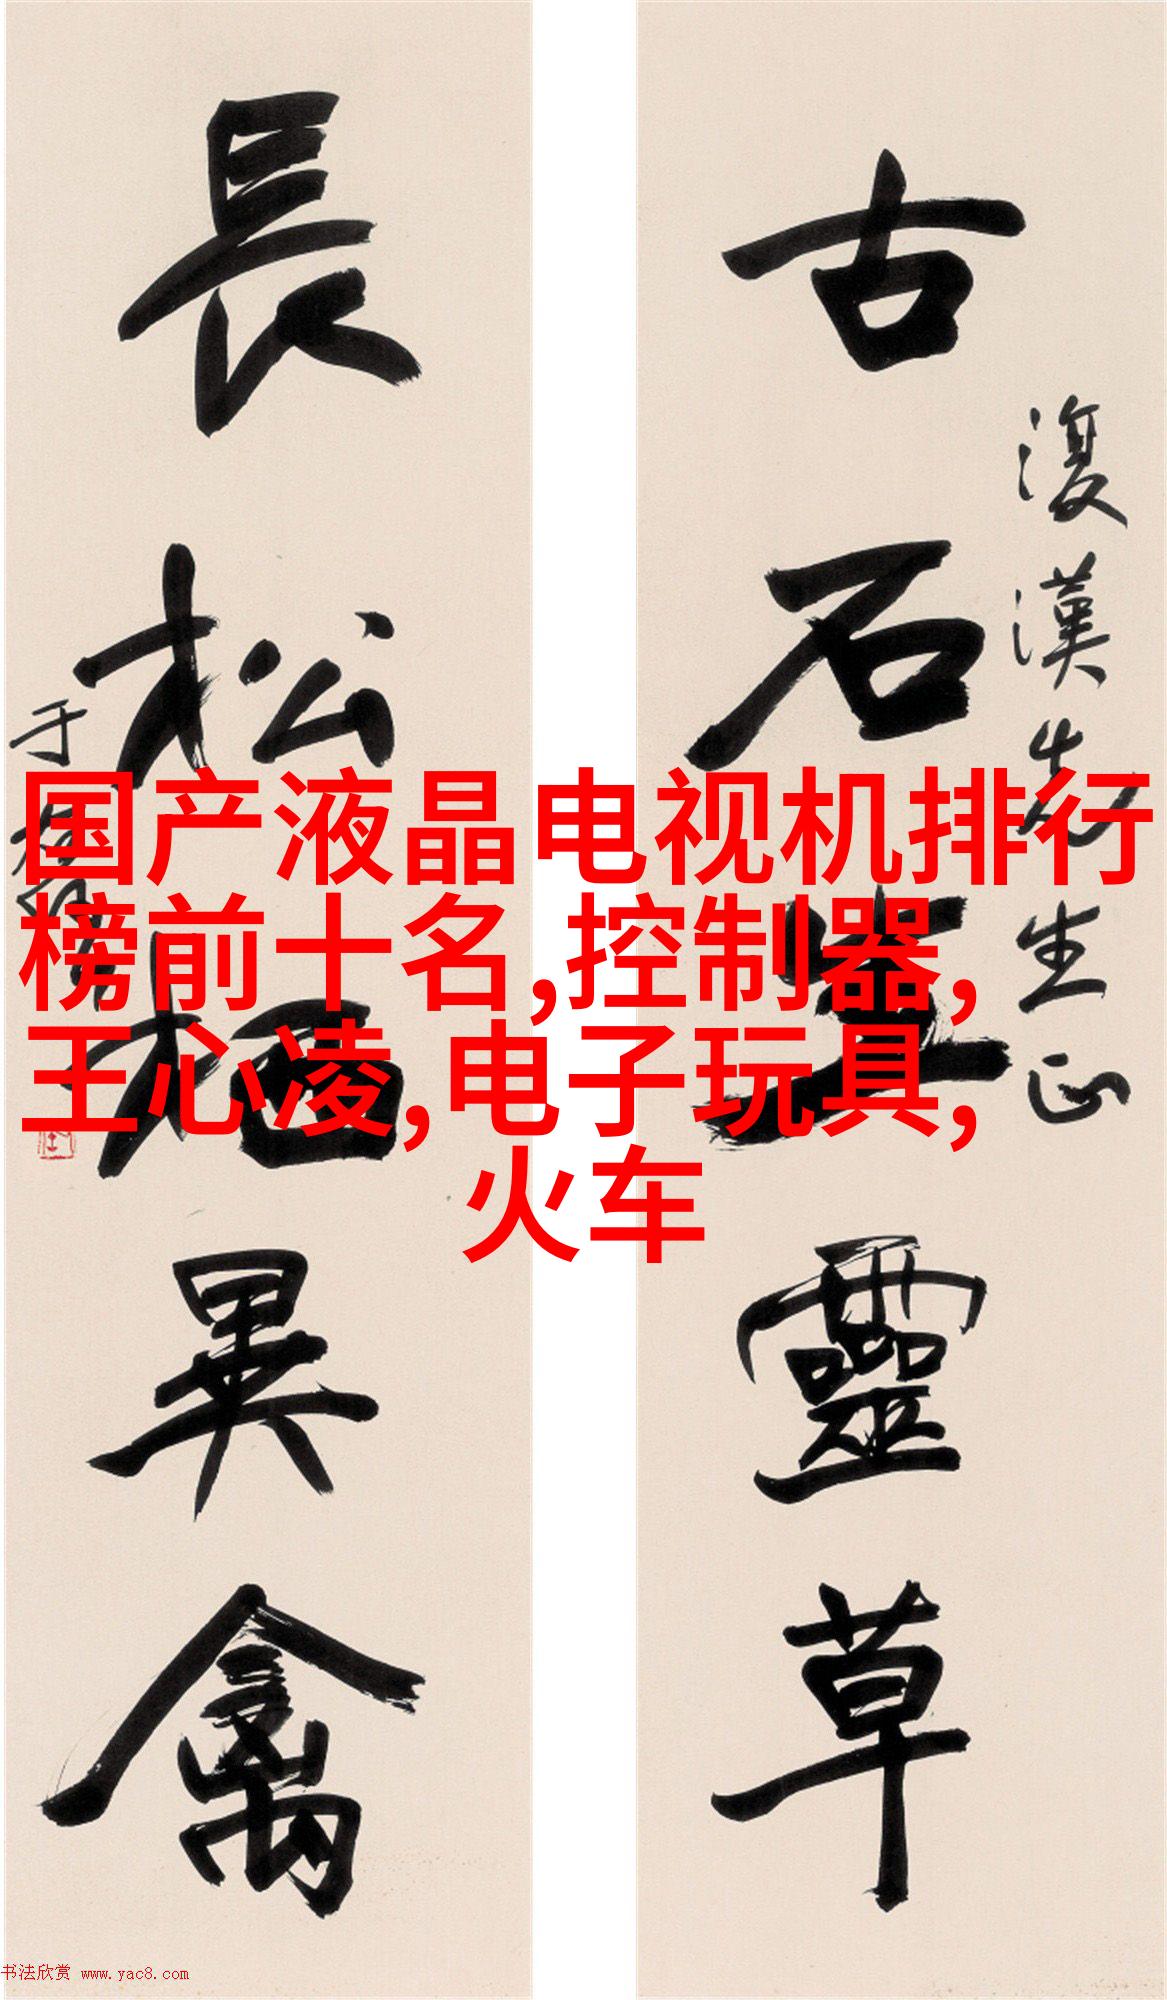 古石生靈草
復漢先生正
長松栖異禽
于右任
国产液晶电视机排行
榜前十名,控制器,
王心凌,电子玩具,
火车
书法欣赏 www.yac8.com